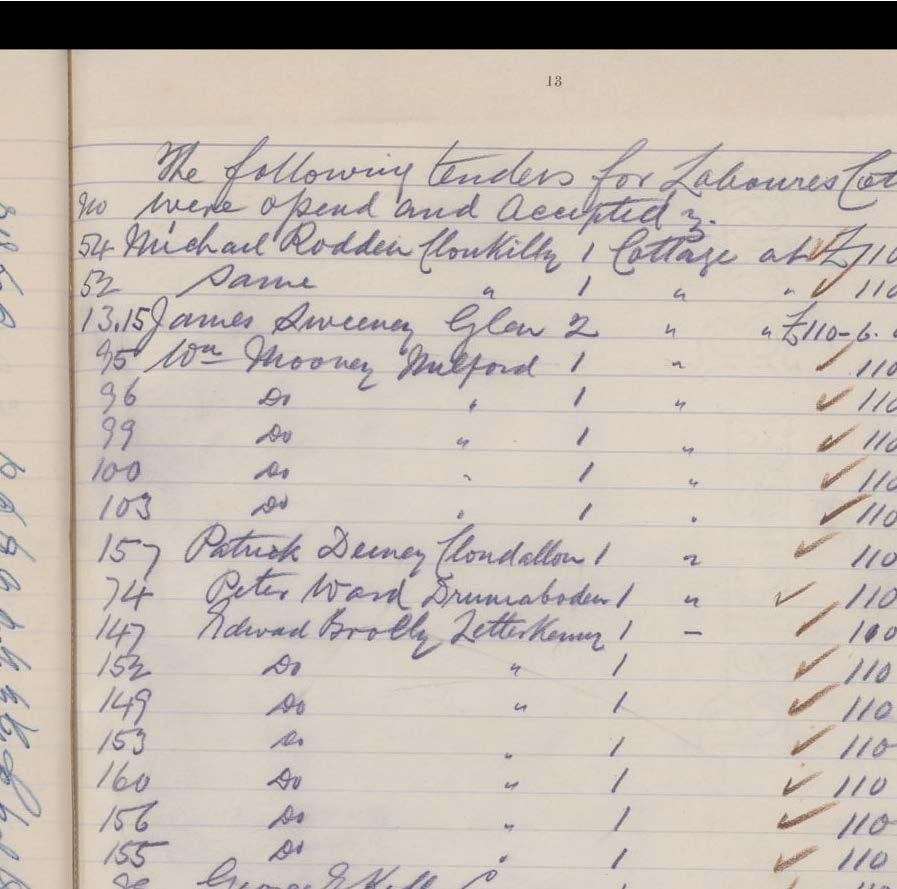 13
The following tenders for Laboures Cot
No were opend and Accepted
54 Michael Rodden Clonkilly 1 Cottage at £110
52 Same " 1 " " 110
13.15 James Sweeney Glen 2 " " £110-6.
95 Wm Mooney Milford 1 " 110
96 Do " 1 " 110
99 Do " 1 " 110
100 Do " 1 " 110
103 Do " 1 " 110
157 Patrick Deeney Clondallon 1 " 110
74 Peter Ward Drumaboden 1 " 110
147 Edwad Brolly Letterkenny 1 - 100
152 Do " 1 110
149 Do " 1 110
153 Do " 1 110
160 Do " 1 110
156 Do " 1 110
155 Do " 1 110
George